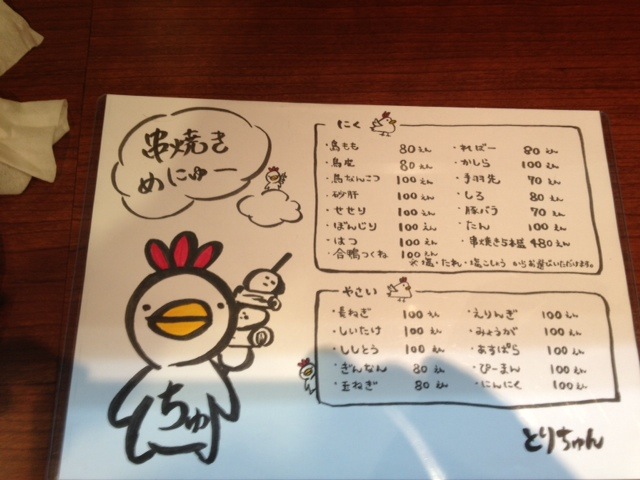 串焼き
めにゅー
にく
・鳥もも 80えん
・鳥皮 80えん
・鳥なんこつ 100えん
・砂肝 100えん
・せせり 100えん
・ぼんじり 100えん
・はつ 100えん
・合鴨つくね 100えん
・ればー 80えん
・かしら 100えん
・手羽先 70えん
・しろ 80えん
・豚バラ 70えん
・たん 100えん
・串焼き5本盛 480えん
※塩・たれ・塩こしょう からお選びいただけます。
やさい
・長ねぎ 100えん
・しいたけ 100えん
・ししとう 100えん
・ぎんなん 80えん
・玉ねぎ 80えん
・えりんぎ 100えん
・みょうが 100えん
・あすぱら 100えん
・ぴーまん 100えん
・にんにく 100えん
ちゅ
とりちゅん